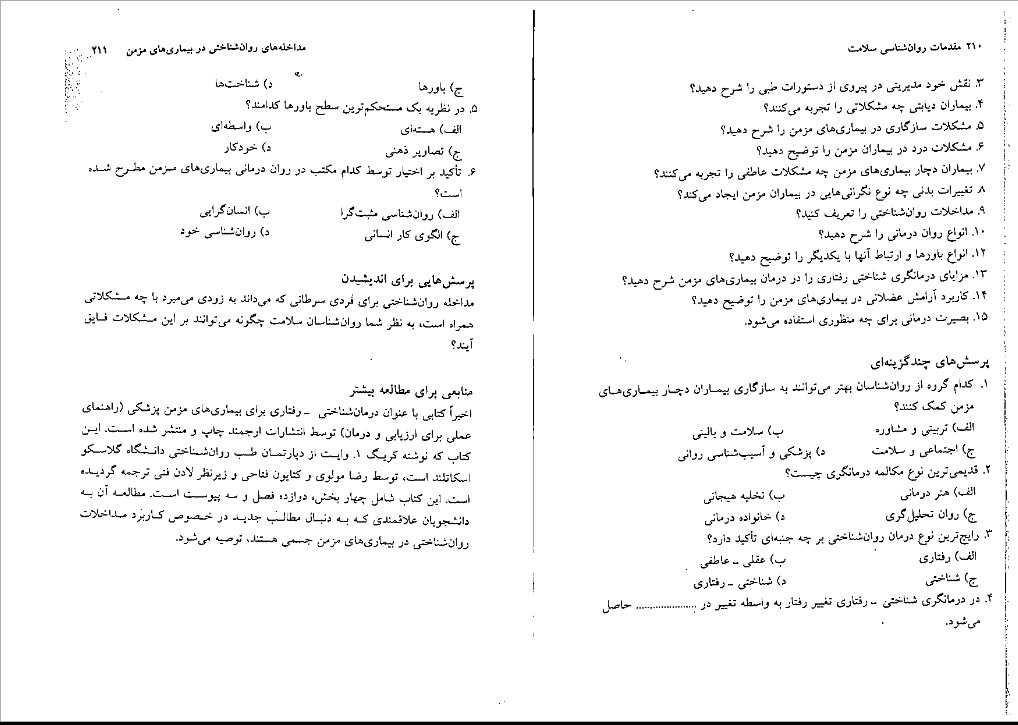 ۲۱۰ مقدمات روان‌شناسی سلامت
۳. نقش خود مدیریتی در پیروی از دستورات طبی را شرح دهید؟
۴. بیماران دیابتی چه مشکلاتی را تجربه می‌کنند؟
۵. مشکلات سازگاری در بیماری‌های مزمن را شرح دهید؟
۶. مشکلات درد در بیماران مزمن را توضیح دهید؟
۷. بیماران دچار بیماری‌های مزمن چه مشکلات عاطفی را تجربه می‌کنند؟
۸ تغییرات بدنی چه نوع نگرانی‌هایی در بیماران مزمن ایجاد می‌کند؟
۹. مداخلات روان‌شناختی را تعریف کنید؟
۱۰. انواع روان درمانی را شرح دهید؟
۱۲. انواع باورها و ارتباط آنها با یکدیگر را توضیح دهید؟
۱۳. مزایای درمانگری شناختی رفتاری را در درمان بیماری‌های مزمن شرح دهید؟
۱۴. کاربرد آرامش عضلانی در بیماری‌های مزمن را توضیح دهید؟
۱۵. بصیرت درمانی برای چه منظوری استفاده می‌شود.
پرسش‌های چندگزینه‌ای
۱. کدام گروه از روان‌شناسان بهتر می‌توانند به سازگاری بیماران دچار بیماری‌های
مزمن کمک کنند؟
الف) تربیتی و مشاوره ب) سلامت و بالینی
ج) اجتماعی و سلامت د) پزشکی و آسیب‌شناسی روانی
۲. قدیمی‌ترین نوع مکالمه درمانگری چیست؟
الف) هنر درمانی ب) تخلیه هیجانی
ج) روان تحلیل‌گری د) خانواده درمانی
۳. رایج‌ترین نوع درمان روان‌شناختی بر چه جنبه‌ای تأکید دارد؟
الف) رفتاری ب) عقلی ـ عاطفی
ج) شناختی د) شناختی ـ رفتاری
۴. در درمانگری شناختی ـ رفتاری تغییر رفتار به واسطه تغییر در ..................... حاصل
می‌شود.
مداخله‌های روان‌شناختی در بیماری‌های مزمن ۲۱۱
ج) باورها د) شناخت‌ها
۵. در نظریه بک مستحکم‌ترین سطح باورها کدامند؟
الف) هسته‌ای ب) واسطه‌ای
ج) تصاویر ذهنی د) خودکار
۶. تأکید بر اختیار توسط کدام مکتب در روان درمانی بیماری‌های مزمن مطرح شده
است؟
الف) روان‌شناسی مثبت‌گرا ب) انسان‌گرایی
ج) الگوی کار انسانی د) روان‌شناسی خود
پرسش‌هایی برای اندیشیدن
مداخله روان‌شناختی برای فردی سرطانی که می‌داند به زودی می‌میرد با چه مشکلاتی
همراه است، به نظر شما روان‌شناسان سلامت چگونه می‌توانند بر این مشکلات فایق
آیند؟
منابعی برای مطالعه بیشتر
اخیراً کتابی با عنوان درمان‌شناختی ـ رفتاری برای بیماری‌های مزمن پزشکی (راهنمای
عملی برای ارزیابی و درمان) توسط انتشارات ارجمند چاپ و منتشر شده است. این
کتاب که نوشته کریگ ا. وایت از دپارتمان طب روان‌شناختی دانشگاه گلاسکو
اسکاتلند است، توسط رضا مولوی و کتایون فتاحی و زیرنظر لادن فتی ترجمه گردیده
است. این کتاب شامل چهار بخش، دوازده فصل و سه پیوست است. مطالعه آن به
دانشجویان علاقمندی که به دنبال مطالب جدید در خصوص کاربرد مداخلات
روان‌شناختی در بیماری‌های مزمن جسمی هستند، توصیه می‌شود.